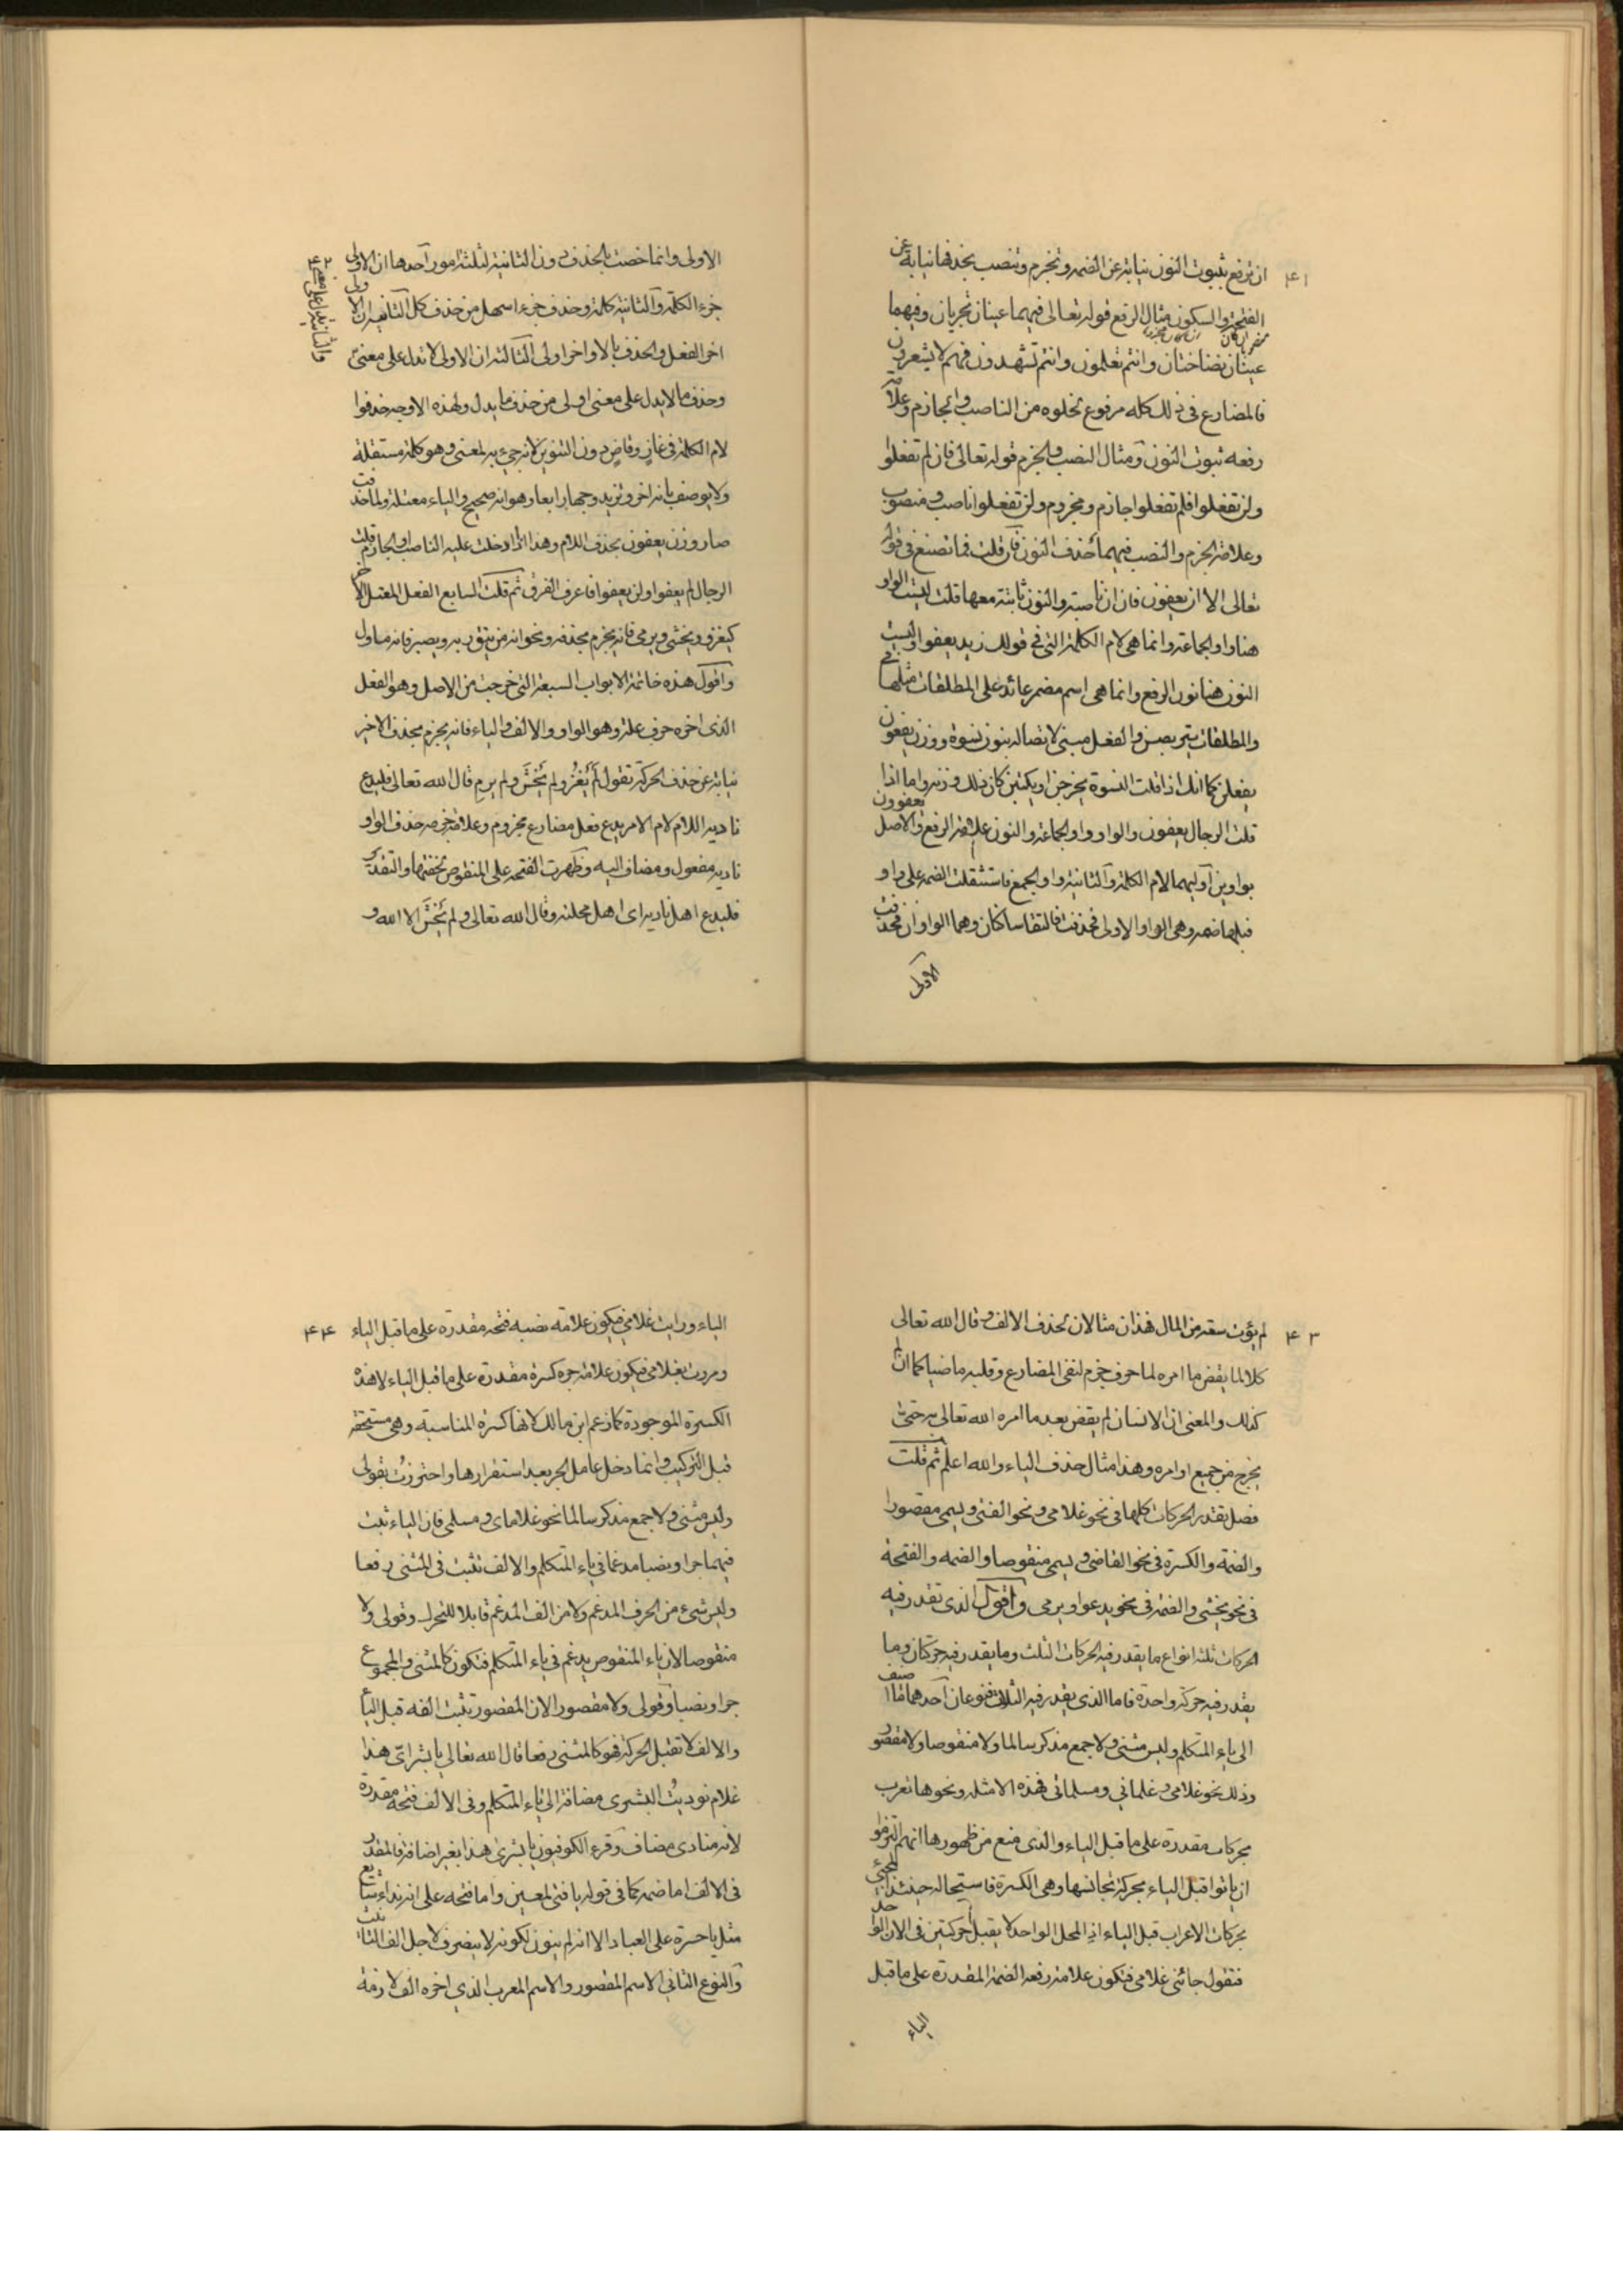 ٤١
ان ترفع بثبوت النون نيابة عن الضمه وتجزم وتنصب بحذفها نيابة عن
الفتحة والسكون مثال الرفع قوله تعالى فيهما عينان تجريان وفيهما
عينان نضاختان وانتم تعلمون وانتم تشهدون فهم لا يشعرون
فالمضارع في ذلك كله مرفوع لخلوه من الناصب والجازم وعلامة
رفعه ثبوت النون ومثال النصب والجزم قوله تعالى فان لم تفعلوا
ولن تفعلوا فلم تفعلوا جازم ومجزوم ولن تفعلوا ناصب ومنصوب
وعلامة الجزم والنصب فيهما حذف النون فان قلت فما تصنع في قوله
تعالى الا ان يعفون فان ان ناصبة والنون ثابتة معها قلت ليست الواو
هنا واو الجماعة وانما هي لام الكلمة التي في قولك زيد يعفو وليست
النون هنا نون الرفع وانما هي اسم مضمر عائد على المطلقات مثلها في
والمطلقات يتربصن والفعل مبني لاتصاله بنون نسوة ووزن يعفون
يفعلن كما انك اذا قلت النسوة يخرجن او يكتبن كان ذلك وزنه واما اذا
قلت الرجال يعفون والواو واو الجماعة والنون علامة الرفع والاصل يعفوون
بواوين اوليهما لام الكلمة والثانية واو الجمع فاستثقلت الضمه على واو
قبلها ضمه وهي الواو الاولى فحذفت فالتقا ساكنان وهما الواوان فحذفت
الاولى
٤٢
الاولى وانما خصت بالحذف دون الثانية لثلثة امور احدها ان الاولى
جزء الكلمة والثانية كلمة وحذف جزء اسهل من حذف كل الثاني ان الاولى
اخر الفعل والحذف بالاواخر اولى الثالثه ان الاولى لا تدل على معنى
والثانية دالة على معنى
وحذف ما لا يدل على معنى اولى من حذف ما يدل ولهذه الاوجه حذفوا
لام الكلمة في غاز وقاض دون التنوين لانه جيء به لمعنى وهو كلمة مستقلة
ولا يوصف بانه اخر وتزيد وجها رابعا وهو انه صحيح والياء معتلة ولما حذفت
صار وزن يعفون بحذف اللام وهذا اذا دخلت عليه الناصب او الجازم قلت
الرجال لم يعفوا ولن يعفوا فاعرف الفرق ثم قلت السابع الفعل المعتل الاخر
كيغزو ويخشى ويرمي فانه يجزم بحذفه ونحو انه من يتق ويصبر فانه مأول
واقول هذه خاتمة الابواب السبعة التي خرجت من الاصل وهو الفعل
الذي اخره حرف علة وهو الواو والالف والياء فانه يجزم بحذف الاخير
نيابة عن حذف الحركة تقول لَم يَغْزُ ولم يَخْشَ ولم يرمِ قال الله تعالى فليدع
ناديه اللام لام الامر يدع فعل مضارع مجزوم وعلامة جزمه حذف الواو
ناديه مفعول ومضاف اليه وظهرت الفتحة على المنقوص لخفتها والتقدير
فليدع اهل ناديه اي اهل مجلسه وقال الله تعالى ولم يَخْشَ الا الله و
٤٣
لم يؤت سعة من المال فهذان مثالان لحذف الالف وقال الله تعالى
كلا لما يقض ما امره لما حرف جزم لنفي المضارع وقلبه ماضيا كما ان لم
كذلك والمعنى ان الانسان لم يقض بعد ما امره الله تعالى به حتى
يخرج من جميع اوامره وهذا مثال حذف الياء والله اعلم ثم قلت
فصل تقدر الحركات كلها في نحو غلامي ونحو الفتى ويسمى مقصورا
والضمة والكسرة في نحو القاضي ويسمى منقوصا والضمه والفتحة
في نحو يخشى والضمة في نحو يدعو ويرمي واقول الذي تقدر فيه
الحركات ثلثة انواع ما يقدر فيه الحركات الثلث وما يقدر فيه حركتان وما
يقدر فيه حركة واحدة فاما الذي يقدر فيه الثلاث فنوعان احدهما ما اضيف
الى ياء المتكلم وليس مثنى ولا جمع مذكر سالما ولا منقوصا ولا مقصورا
وذلك نحو غلامي وغلماني ومسلماتي فهذه الامثله ونحوها تعرب
بحركات مقدرة على ما قبل الياء والذي منع من ظهورها انهم التزموا
ان ياتوا قبل الياء بحركة تجانسها وهي الكسرة فاستحال حينئذ المجيء
بحركات الاعراب قبل الياء اذ المحل الواحد لا يقبل حركتين في الان الواحد
فتقول جائني غلامي فتكون علامة رفعه الضمة المقدرة على ما قبل
الياء
٤٤
الياء ورايت غلامي فيكون علامة نصبه فتحه مقدرة على ما قبل الياء
ومررت بغلامي فيكون علامة جره كسرة مقدرة على ما قبل الياء لا هذه
الكسرة الموجودة كما زعم ابن مالك لانها كسرة المناسبة وهي مستحقه
قبل التركيب وانما دخل عامل الجر بعد استقرارها واحترزتُ بقولى
وليس مثنى ولا جمع مذكر سالما نحو غلاماي ومسلمي فان الياء تثبت
فيهما جرا ونصبا مدغما في ياء المتكلم والالف تثبت في المثنى رفعا
وليس شيء من الحرف المدغم ولا من الف المدغم قابلا للتحرك وقولى ولا
منقوصا لان ياء المنقوص يدغم في ياء المتكلم فتكون كالمثنى والمجموع
جرا ونصبا وقولى ولا مقصورا لان المقصور تثبت الفه قبل الياء
والالف لا تقبل الحركة فهو كالمثنى رفعا قال الله تعالى يا بشراىَ هذا
غلام نوديتُ البشرى مضافة الى ياء المتكلم وفي الالف فتحة مقدرة
لانه منادى مضاف وقرء الكوفيون يا بشرى هذا بغير اضافة فالمقدر
في الالف اما ضمه كما في قوله يا فتى لمعين واما فتحه على انه نداء شايع
مثل يا حسرة على العباد الا انه لم ينون لكونه لا ينصرف لاجل الف التانيث
والنوع الثاني الاسم المقصور والاسم المعرب الذي اخره الف لازمة